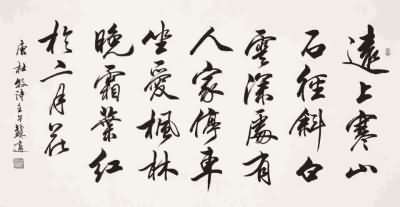 遠上寒山
石徑斜白
雲深處有
人家停車
坐愛楓林
晚霜葉紅
於二月花
唐杜牧詩